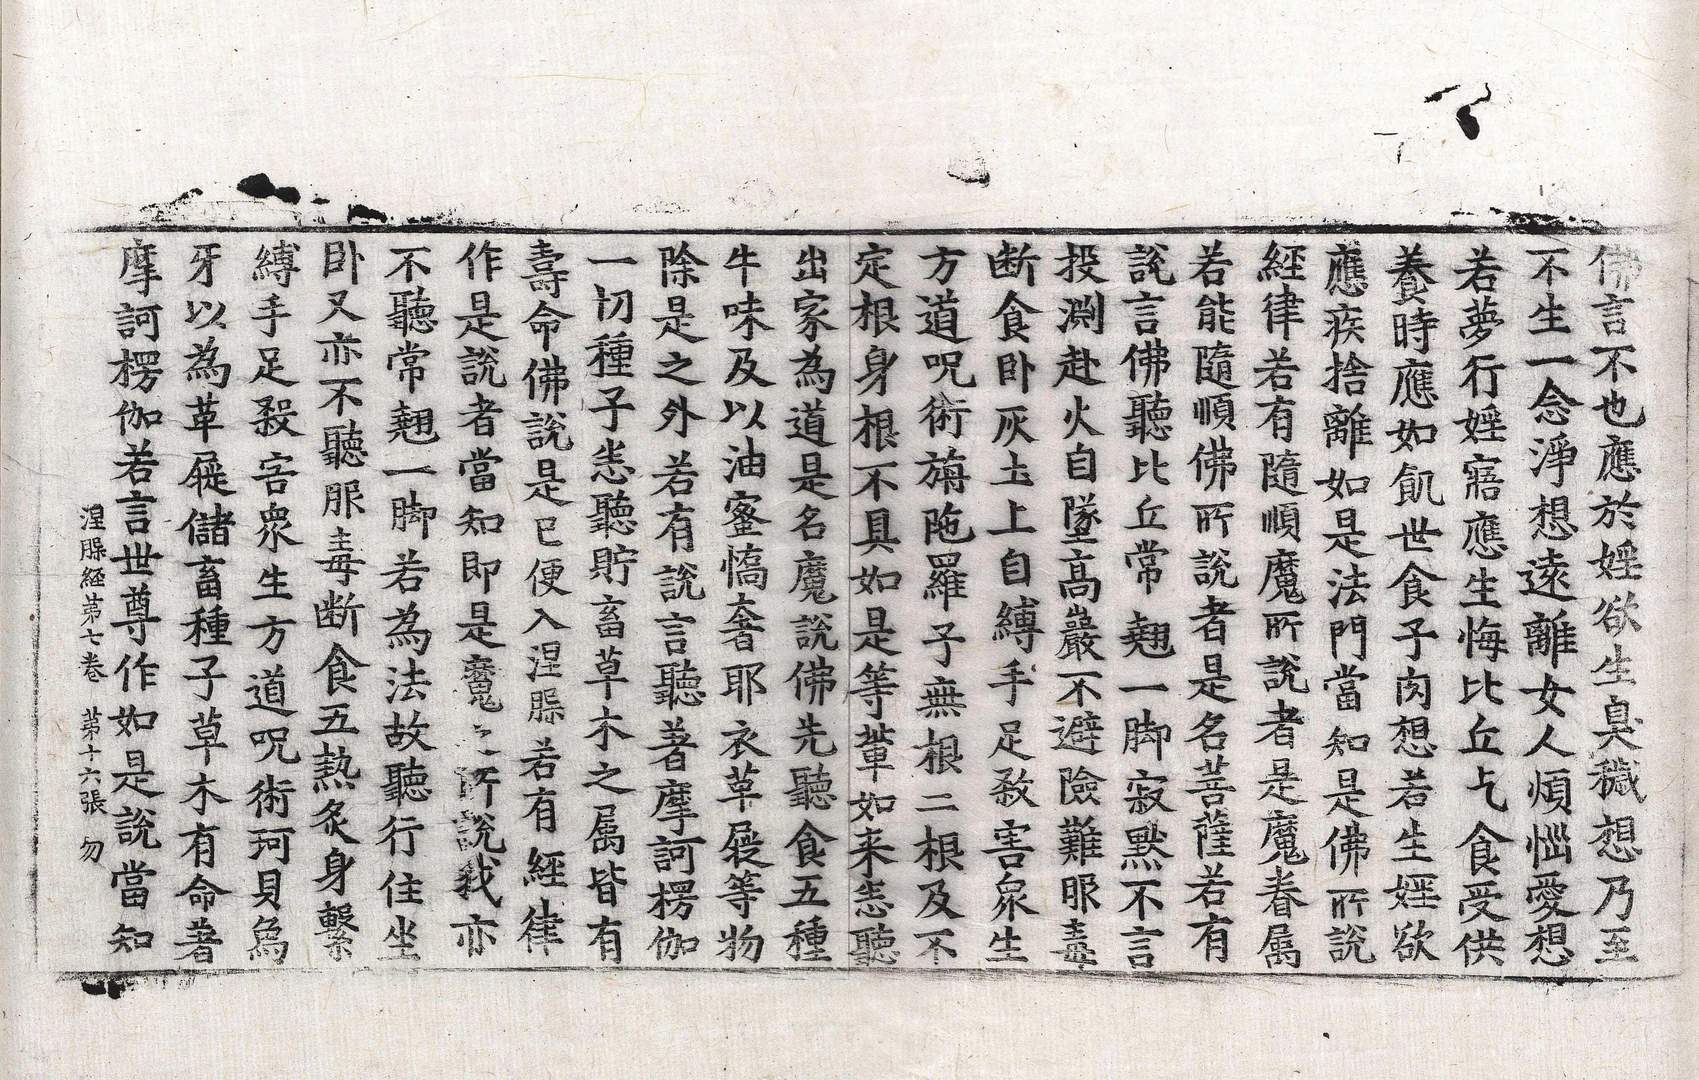 佛言不也應於婬欲生臭穢想乃至
不生一念淨想遠離女人煩惱愛想
若夢行婬寤應生悔比丘乞食受供
養時應如飢世食子肉想若生婬欲
應疾捨離如是法門當知是佛所說
經律若有隨順魔所說者是魔眷属
若能隨順佛所說者是名菩薩若有
說言佛聽比丘常翹一脚寂默不言
投淵赴火自墜高巖不避險難服毒
断食卧灰土上自縛手足殺害衆生
方道呪術旃陁羅子無根二根及不
定根身根不具如是等輩如来悉聽
出家為道是名魔說佛先聽食五種
牛味及以油蜜憍奢耶衣革屣等物
除是之外若有說言聽著摩訶楞伽
一切種子悉聽貯畜草木之属皆有
壽命佛說是已便入涅槃若有經律
作是說者當知即是魔之所說我亦
不聽常翹一脚若為法故聽行住坐
卧又亦不聽服毒断食五熱炙身繫
縛手足殺害衆生方道呪術珂貝為
牙以為革屣儲畜種子草木有命著
摩訶楞伽若言世尊作如是說當知
涅槃経苐七卷 苐十六張 勿